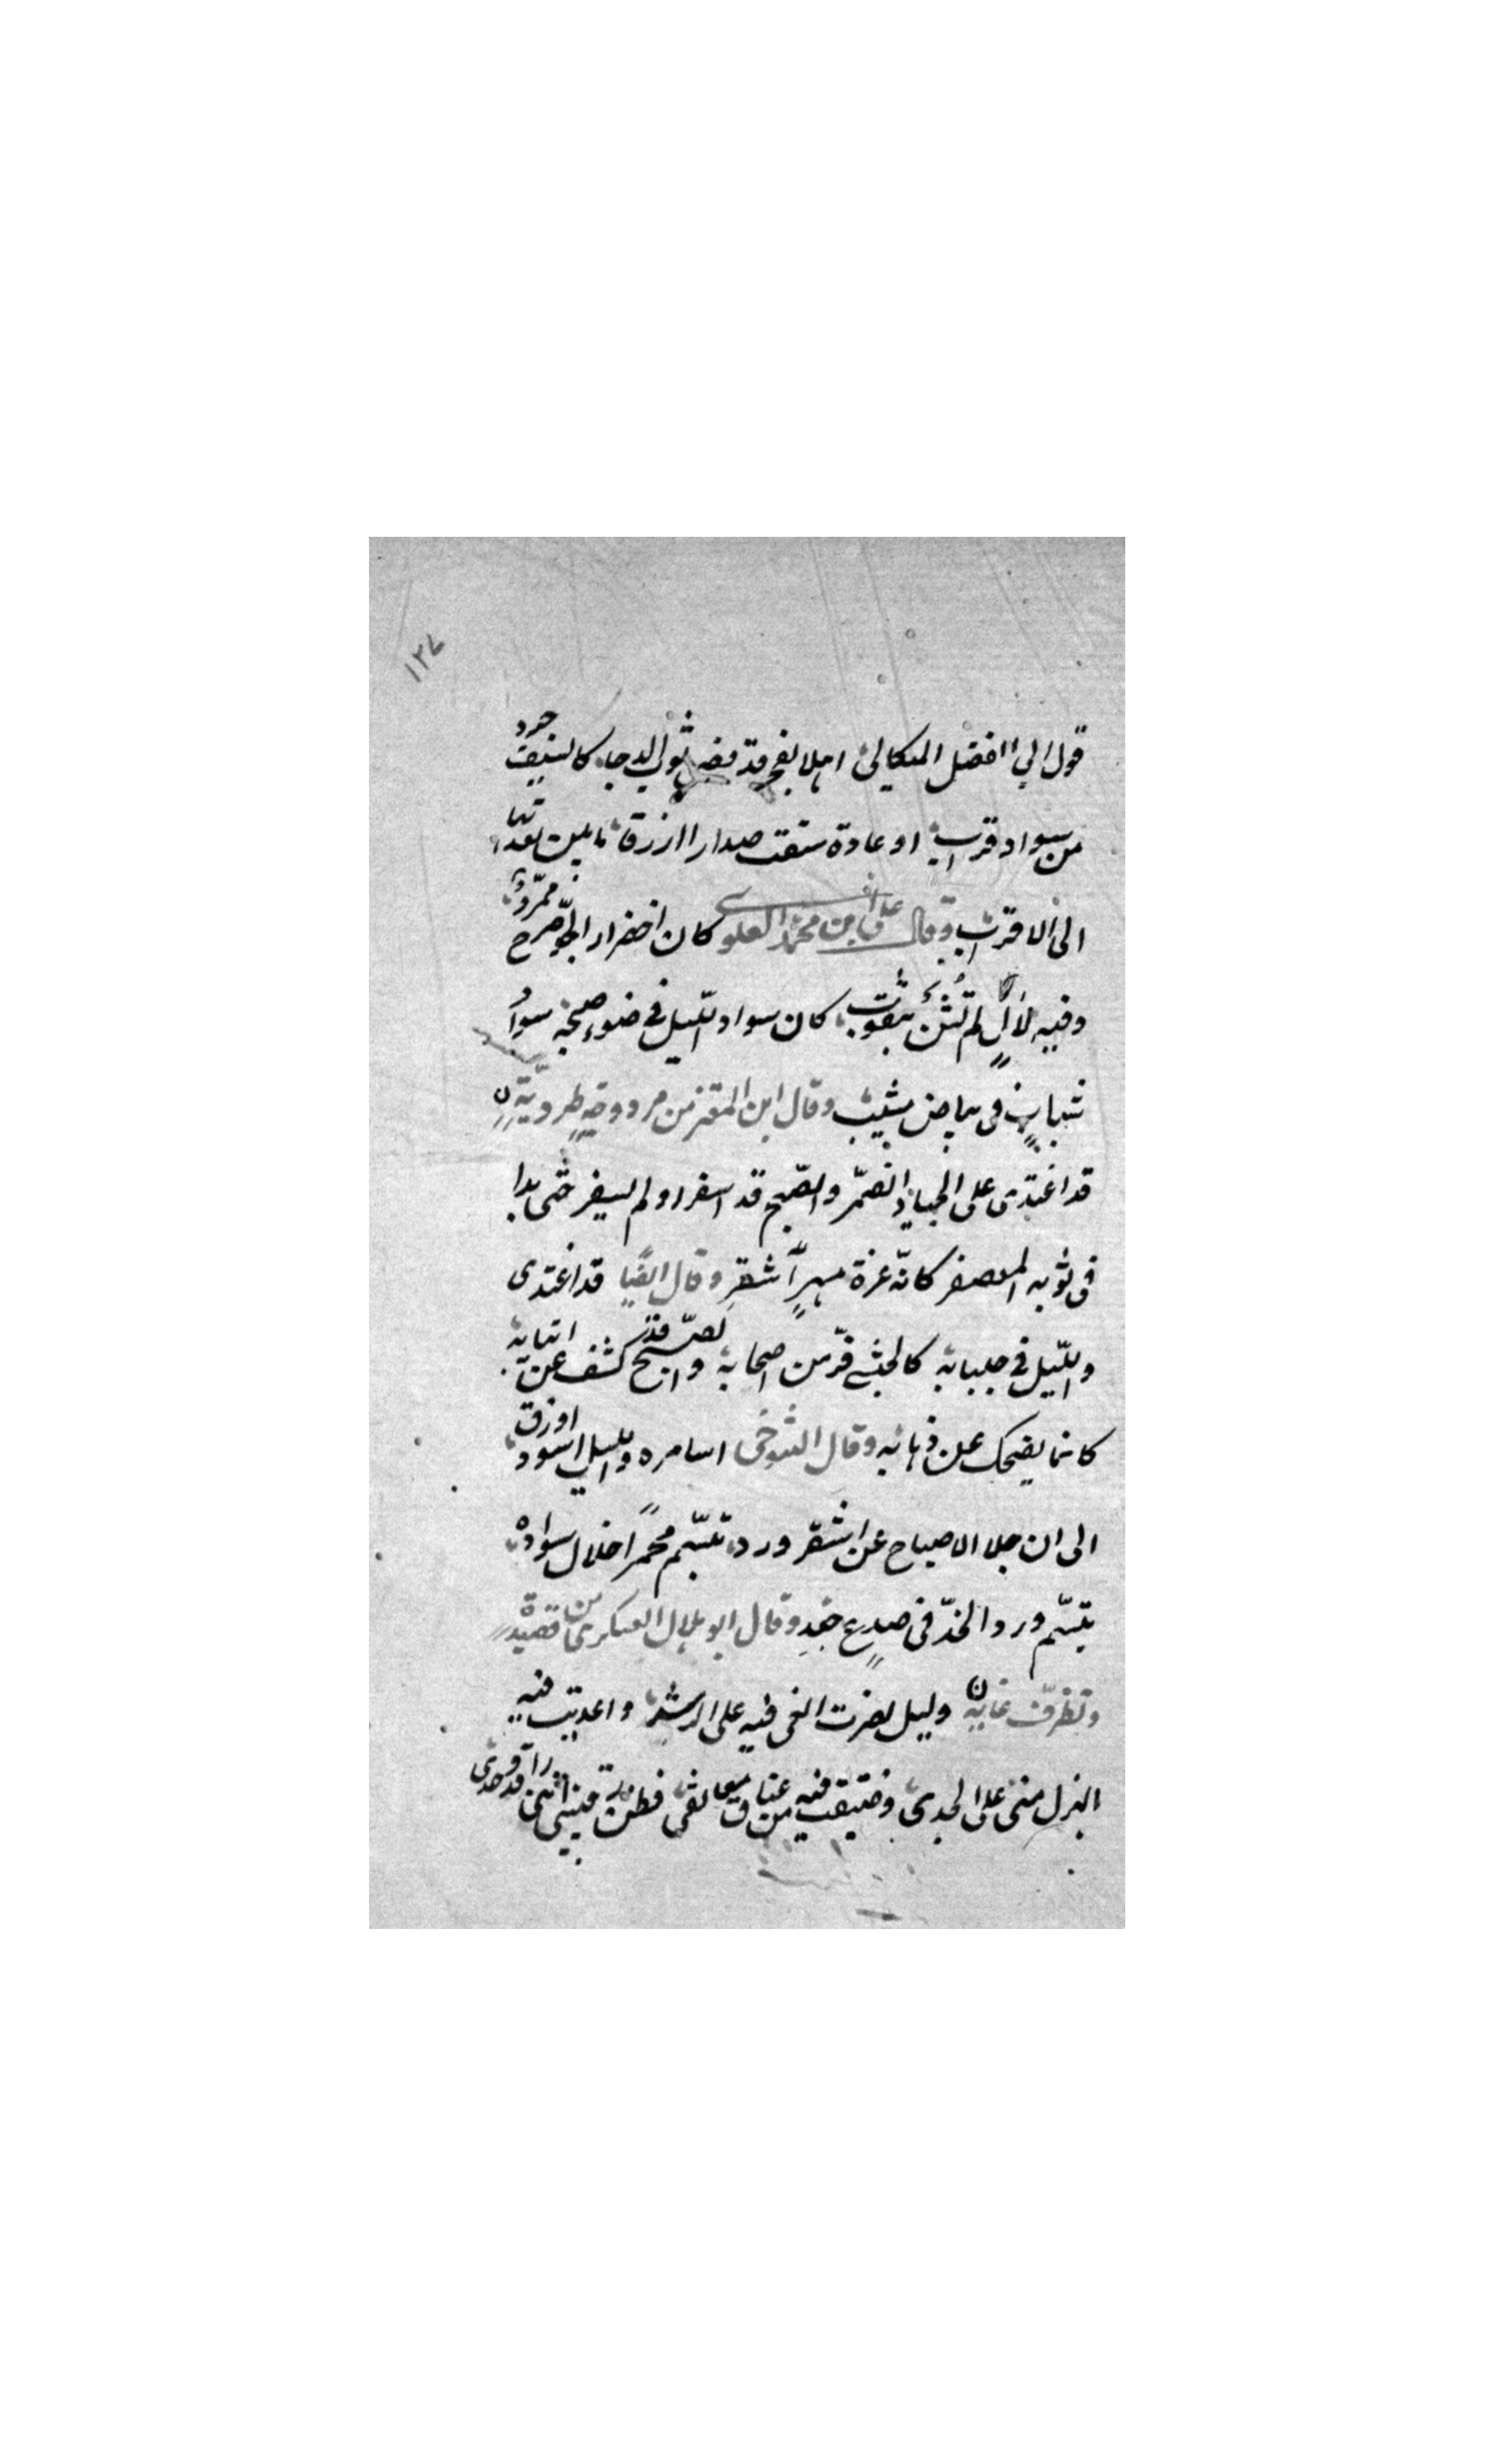 ١٣٧
قول ابي الفضل الميكالي اهلا بفجر قد نضى ثوب الدجا كالسيف جرد
من سواد قراب او غادة شقت صدارا ازرقا ما بين ثغرتها
الى الاقراب وقال على بن محمد العلوى كان اخضرار الجو صرح ممرد
وفيه لآل لم تشن بثقوب كان سواد الليل في ضوء صبحه سواد
شباب في بياض مشيب وقال ابن المعتز من مزدوجة طردية
قد اغتدى على الجياد الضمر والصبح قد اسفر او لم يسفر حتى بدا
فى ثوبه المعصفر كانه غرة مهر اشقر وقال ايضا قد اغتدى
والليل في جلبابه كالحبشى فر من اصحابه والصبح قد كشف عن انيابه
كانما يضحك عن ذهابه وقال التنوخى اسامره والليل اسود اورق
الى ان جلا الاصباح عن اشقر ورد تبسم محمرا خلال سواده
تبسم ورد الخد فى صدغ جعد وقال ابو هلال العسكرى من قصيدة
وتظرف وليل نصرت الغى فيه على الرشد واعديت فيه
الهزل منى على الجد وضيقت فيه من عناق معانقى فظن